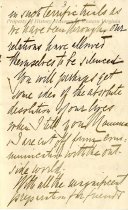 in such terrific trials as
we have been through. Our
relations have allowed
themselves to be silenced
You will perhaps get
some idea of the absolute
desolation of our lives
when I tell you Mamma
& I are cut off from com-
munication with the out-
side world.
With all the magnificent
preparation for friends